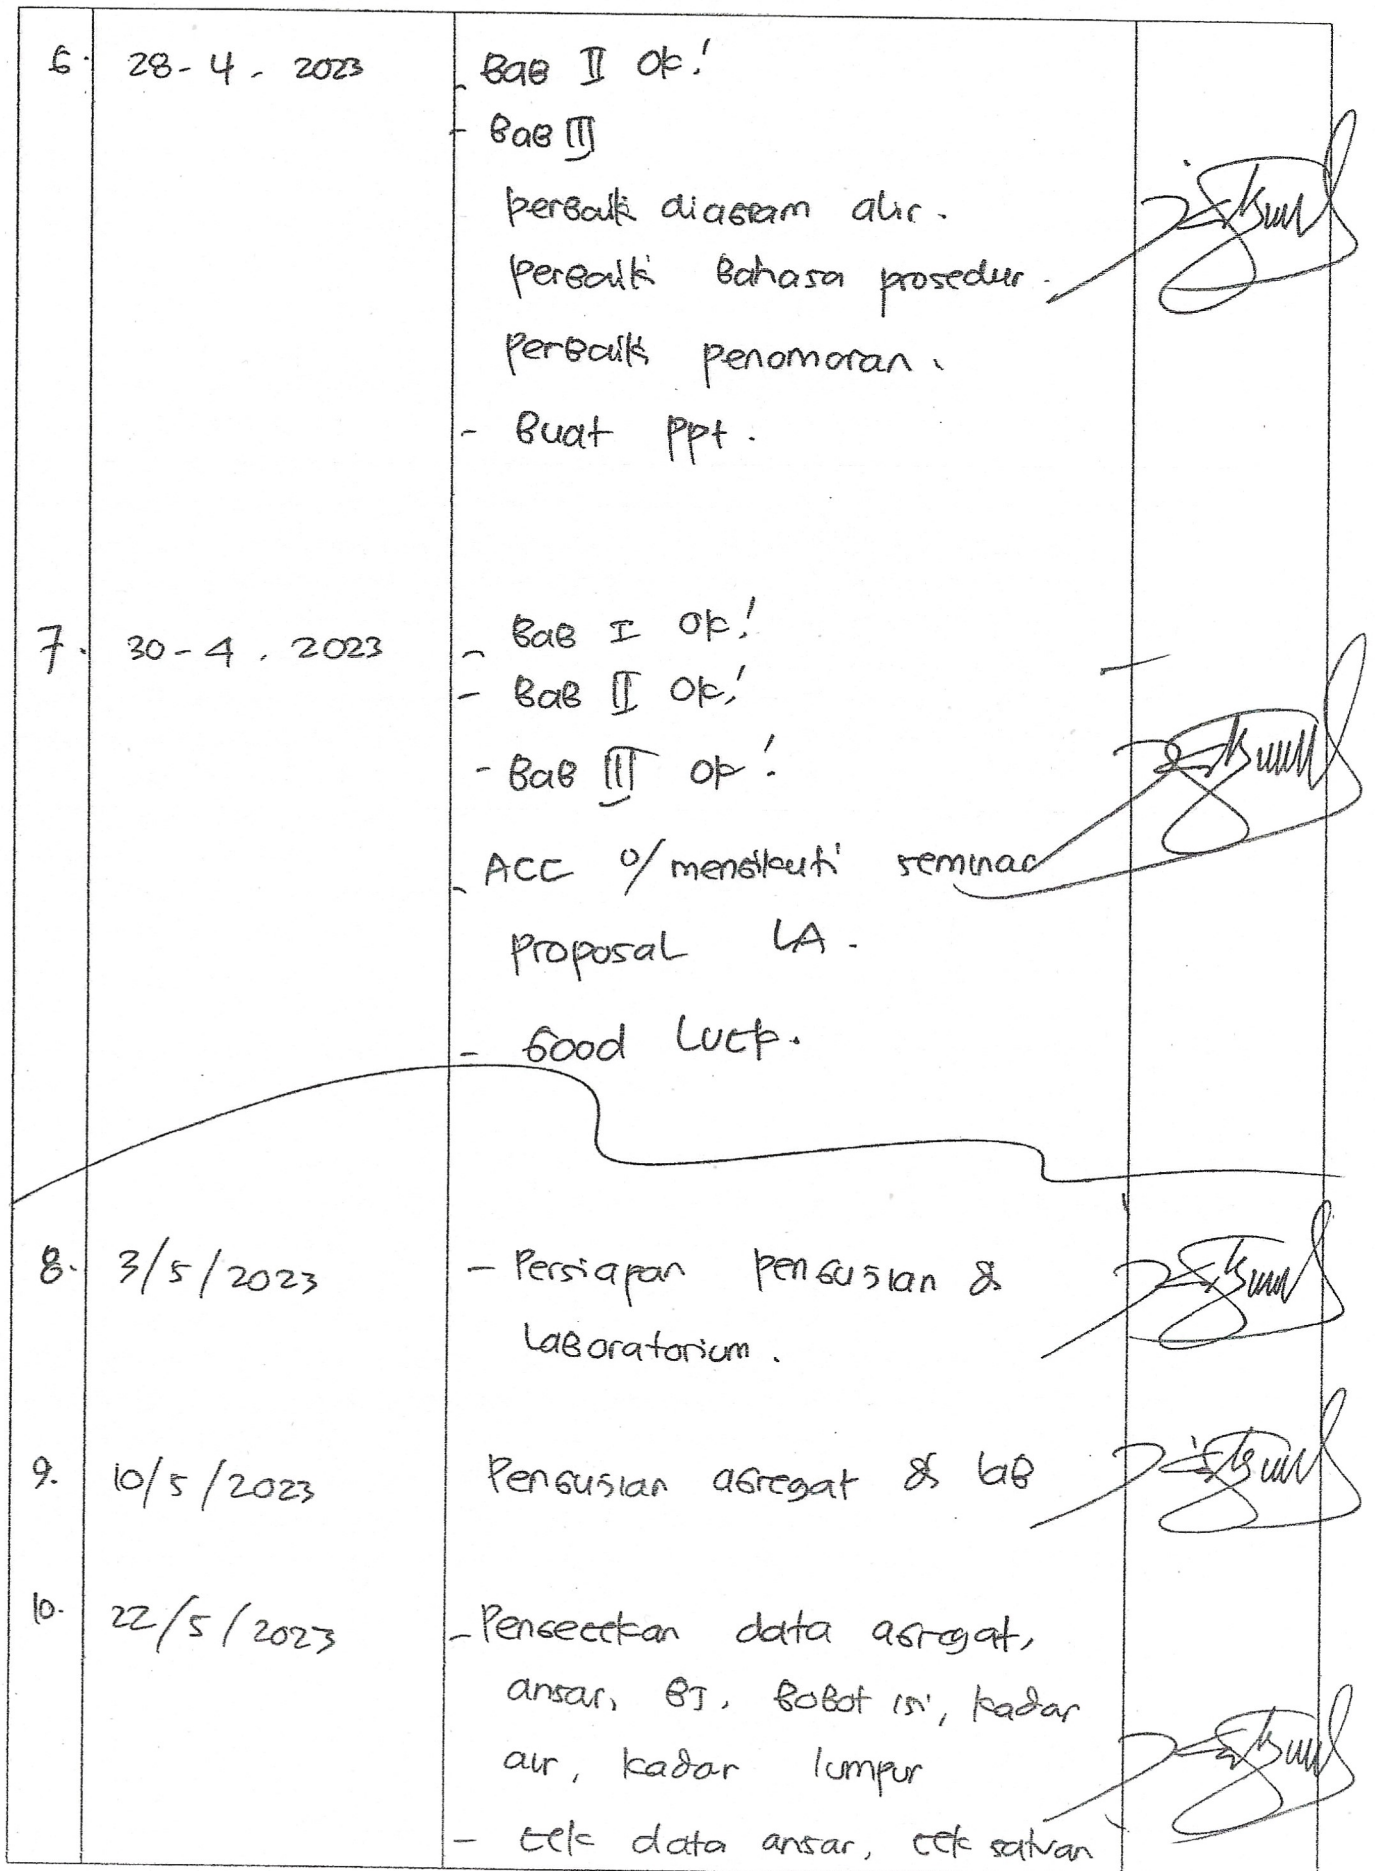 6. 28-4-2023 - Bab II ok!
- Bab III
perbaiki diagram alir.
perbaiki bahasa prosedur.
perbaiki penomoran.
- Buat ppt.
7. 30-4.2023 - Bab I ok!
- Bab II ok!
- Bab III ok!
- ACC u/ mengikuti seminar
proposal LA.
- Good Luck.
8. 3/5/2023 - Persiapan pengujian &
laboratorium.
9. 10/5/2023 Pengujian agregat & lab
10. 22/5/2023 - Pengecekan data agregat,
ansar, BJ, Bobot isi, kadar
air, kadar lumpur
- cek data ansar, cek satuan